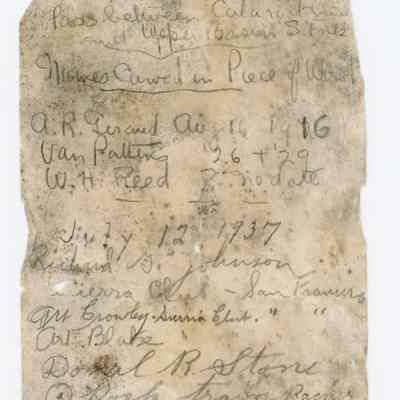 Pass between
Upper Basin
Names Carved in Piece of Wood
A. R. Girard Aug 16 1916
Van Patting '26 + '29
W. H. Reed no date
July 12 1937
Richard G. Johnson
Sierra Club - San Francisco
Art Crowley - Sierra Club. " "
Art Blake "
Donal R Stone